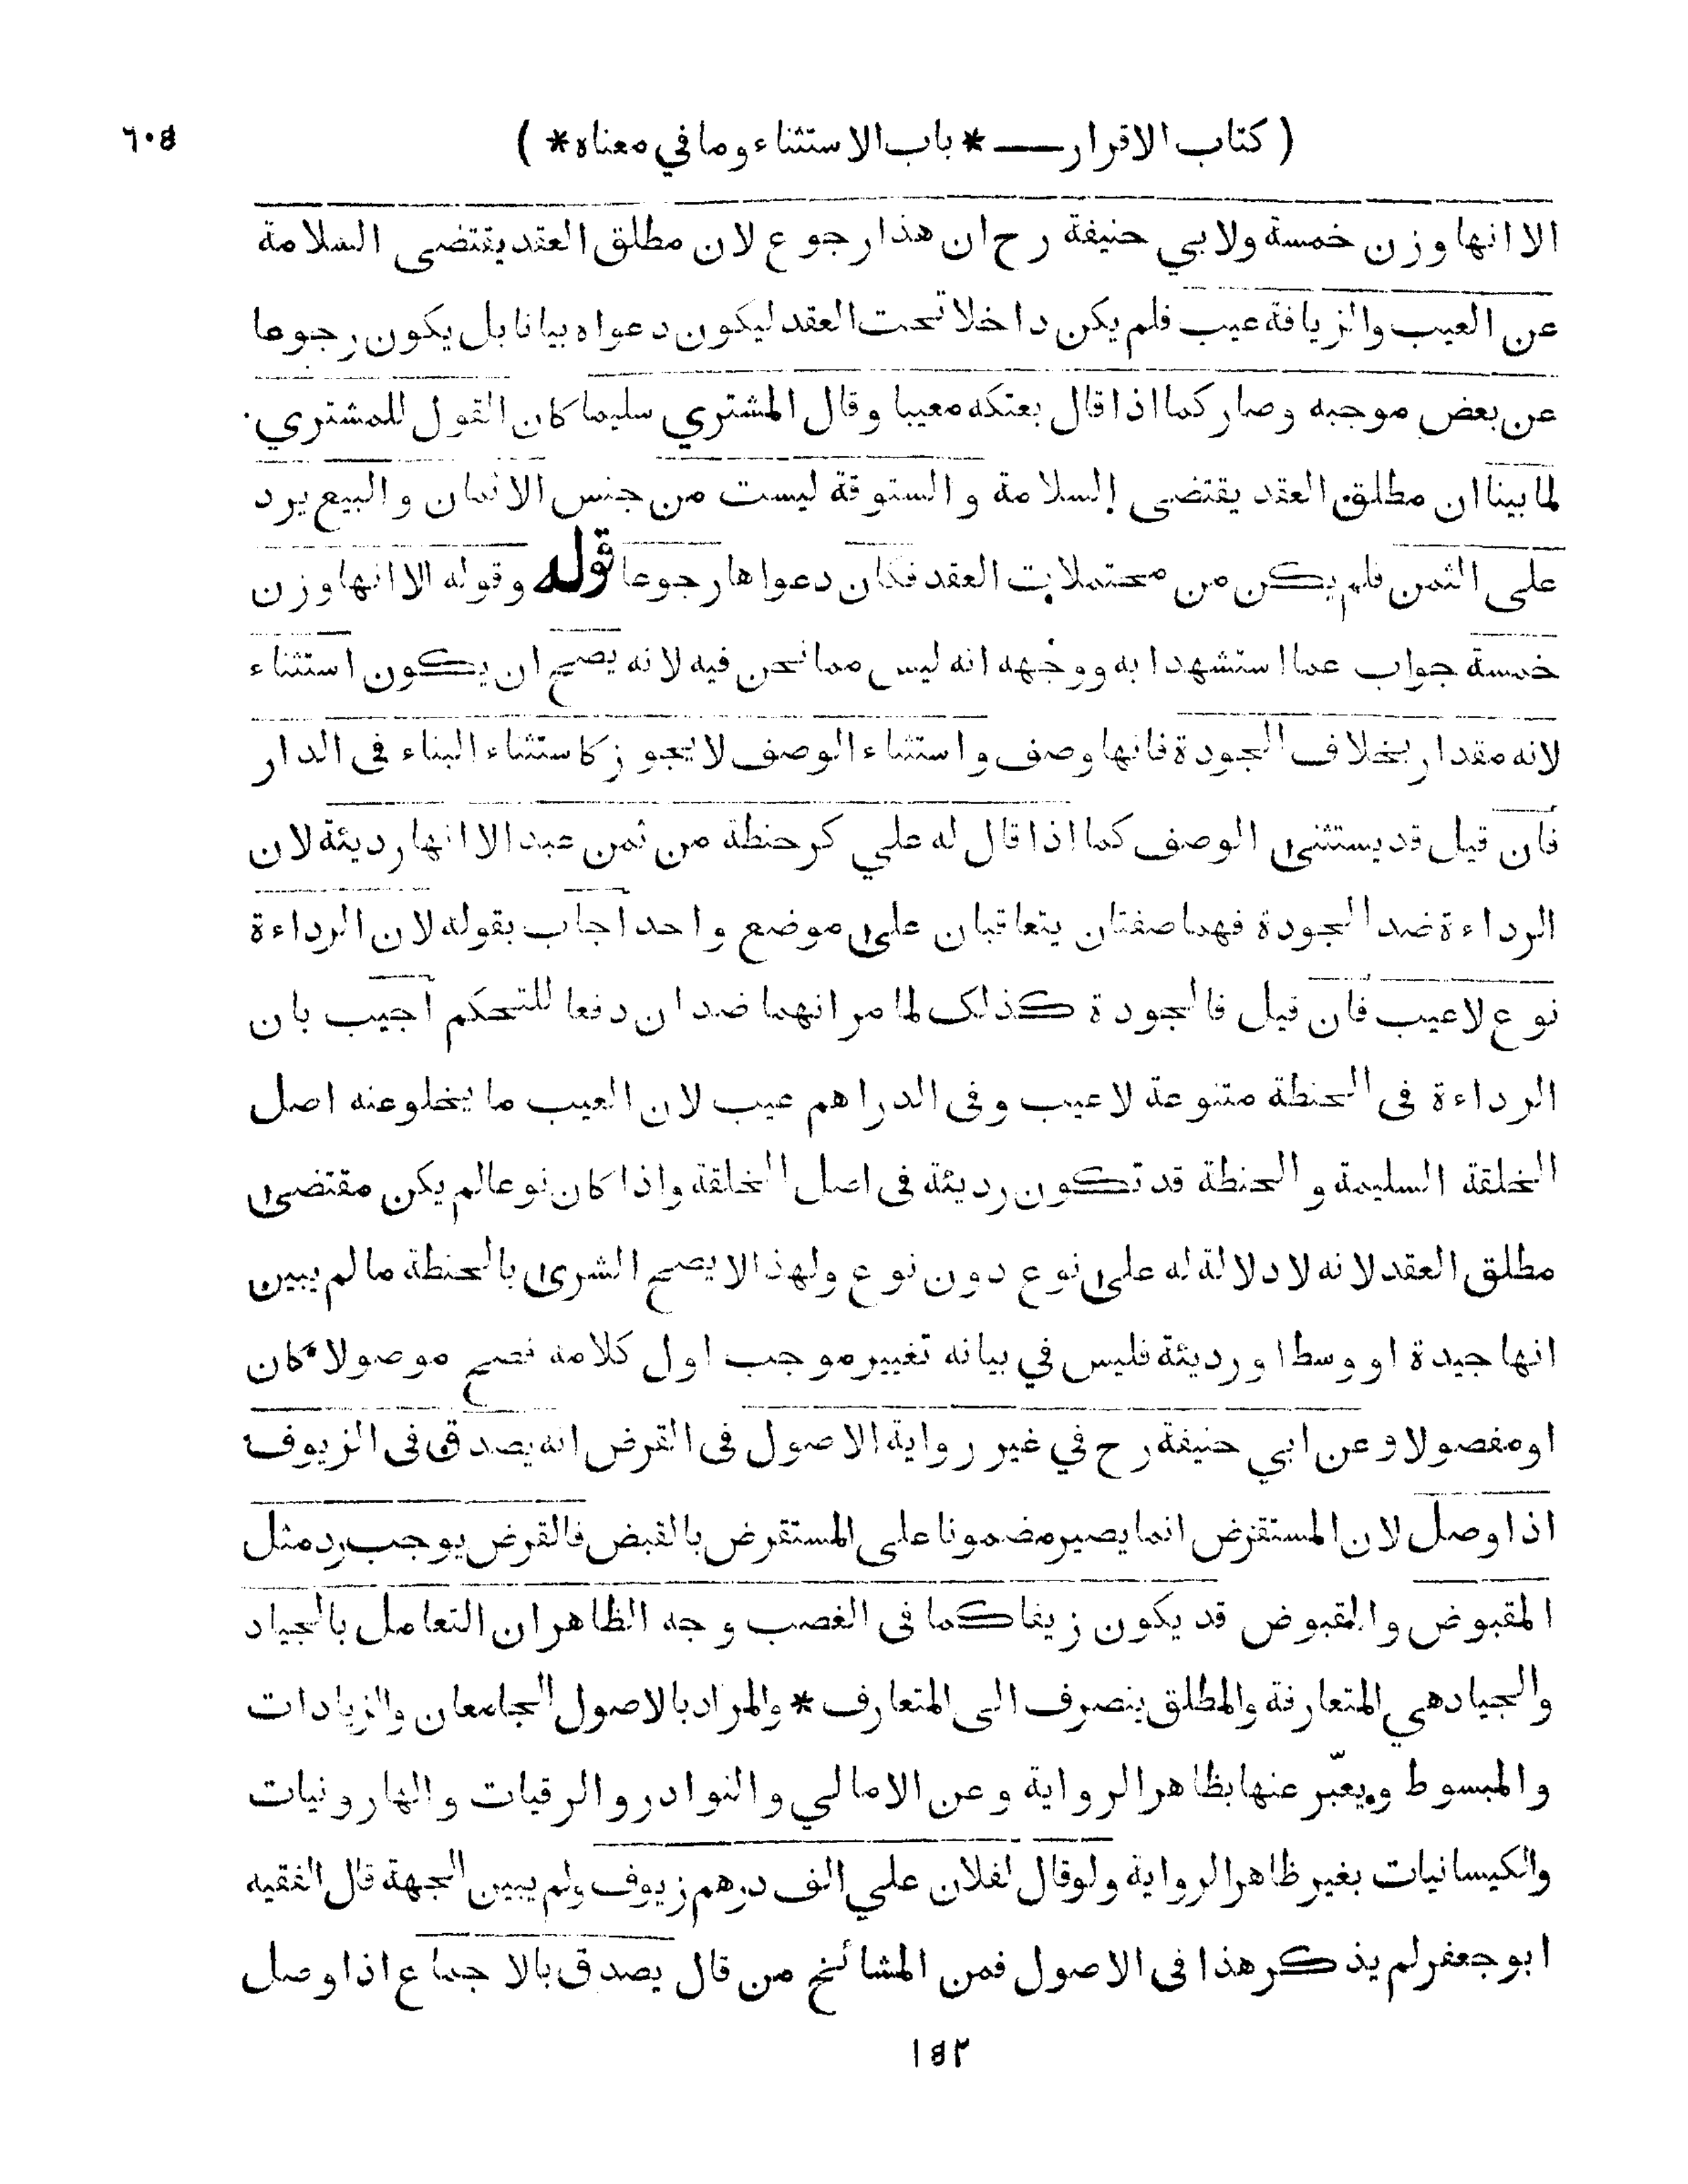 ( كتاب الاقرار — * باب الاستثناء وما في معناه * )
٦٠٥
الا انها وزن خمسة ولابي حنيفة رح ان هذا رجوع لان مطلق العقد يقتضى السلامة
عن العيب والزيافة عيب فلم يكن داخلا تحت العقد ليكون دعواه بيانا بل يكون رجوعا
عن بعض موجبه وصار كما اذا قال بعتكه معيبا وقال المشتري سليما كان القول للمشتري
لما بينا ان مطلق العقد يقتضى السلامة والستوقة ليست من جنس الاثمان والبيع يرد
على الثمن فلم يكن من محتملات العقد فكان دعواها رجوعا قوله وقوله الا انها وزن
خمسة جواب عما استشهدا به ووجهه انه ليس مما نحن فيه لانه يصح ان يكون استثناء
لانه مقدار بخلاف الجودة فانها وصف واستثناء الوصف لا يجوز كاستثناء البناء فى الدار
فان قيل قد يستثنى الوصف كما اذا قال له علي كر حنطة من ثمن عبد الا انها رديئة لان
الرداءة ضد الجودة فهما صفتان يتعاقبان على موضع واحد اجاب بقوله لان الرداءة
نوع لاعيب فان قيل فالجودة كذلك لما مر انهما ضدان دفعا للتحكم اجيب بان
الرداءة فى الحنطة متنوعة لاعيب وفى الدراهم عيب لان العيب ما يخلو عنه اصل
الخلقة السليمة والحنطة قد تكون رديئة فى اصل الخلقة واذا كان نوعا لم يكن مقتضى
مطلق العقد لانه لا دلالة له على نوع دون نوع ولهذا لا يصح الشرى بالحنطة ما لم يبين
انها جيدة او وسط او رديئة فليس في بيانه تغيير موجب اول كلامه فصح موصولا كان
او مفصولا وعن ابي حنيفة رح في غير رواية الاصول فى القرض انه يصدق فى الزيوف
اذا وصل لان المستقرض انما يصير مضمونا على المستقرض بالقبض فالقرض يوجب رد مثل
المقبوض والمقبوض قد يكون زيفا كما فى الغصب وجه الظاهر ان التعامل بالجياد
والجياد هي المتعارفة والمطلق ينصرف الى المتعارف * والمراد بالاصول الجامعان والزيادات
والمبسوط ويعبّر عنها بظاهر الرواية وعن الامالي والنوادر والرقيات والهارونيات
والكيسانيات بغير ظاهر الرواية ولو قال لفلان علي الف درهم زيوف ولم يبين الجهة قال الفقيه
ابو جعفر لم يذكر هذا فى الاصول فمن المشائخ من قال يصدق بالاجماع اذا وصل
١٥٢